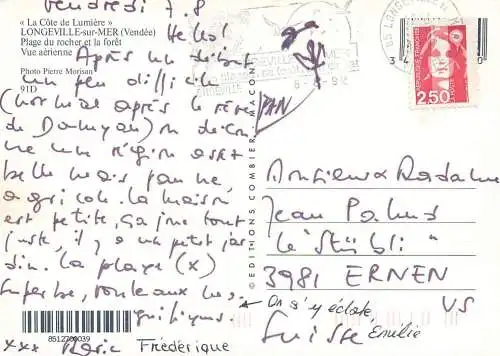 vendredi 7.8
« La Côte de Lumière »
LONGEVILLE-sur-MER (Vendée)
Plage du rocher et la forêt
Vue aérienne
Photo Pierre Morisan
91D
Hello!
Après un début
un peu difficile
(normal après le rêve
de
PAN
ne un région assez
belle mais pauvre,
agricole. la maison
est petite, ça joue tout
juste, il y a un petit jar
din. la plage (x)
superbe, rouleaux
xxx Marie Frédérique
8512700039
© EDITIONS COMBIER MACON
85 LONGEVILLE S. M
6-8-92
REPUBLIQUE FRANÇAISE
2,50
LA POSTE
3 4 0
Monsieur & Madame
Jean
"le Stübli"
3981 ERNEN
VS
Suisse
On s'y éclate,
Emilie